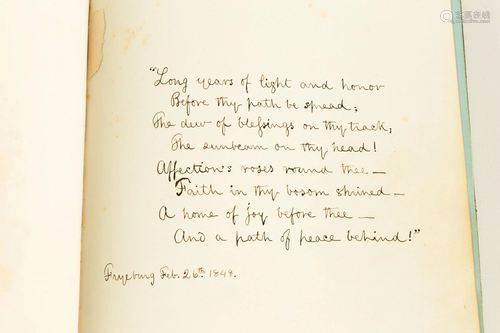 "Long years of light and honor
Before thy path be spread;
The dew of blessings on thy track,
The sunbeam on thy head!
Affection's roses round thee —
Faith in thy bosom shrined —
A home of joy before thee —
And a path of peace behind!"
Fryeburg Feb. 26th 1848.